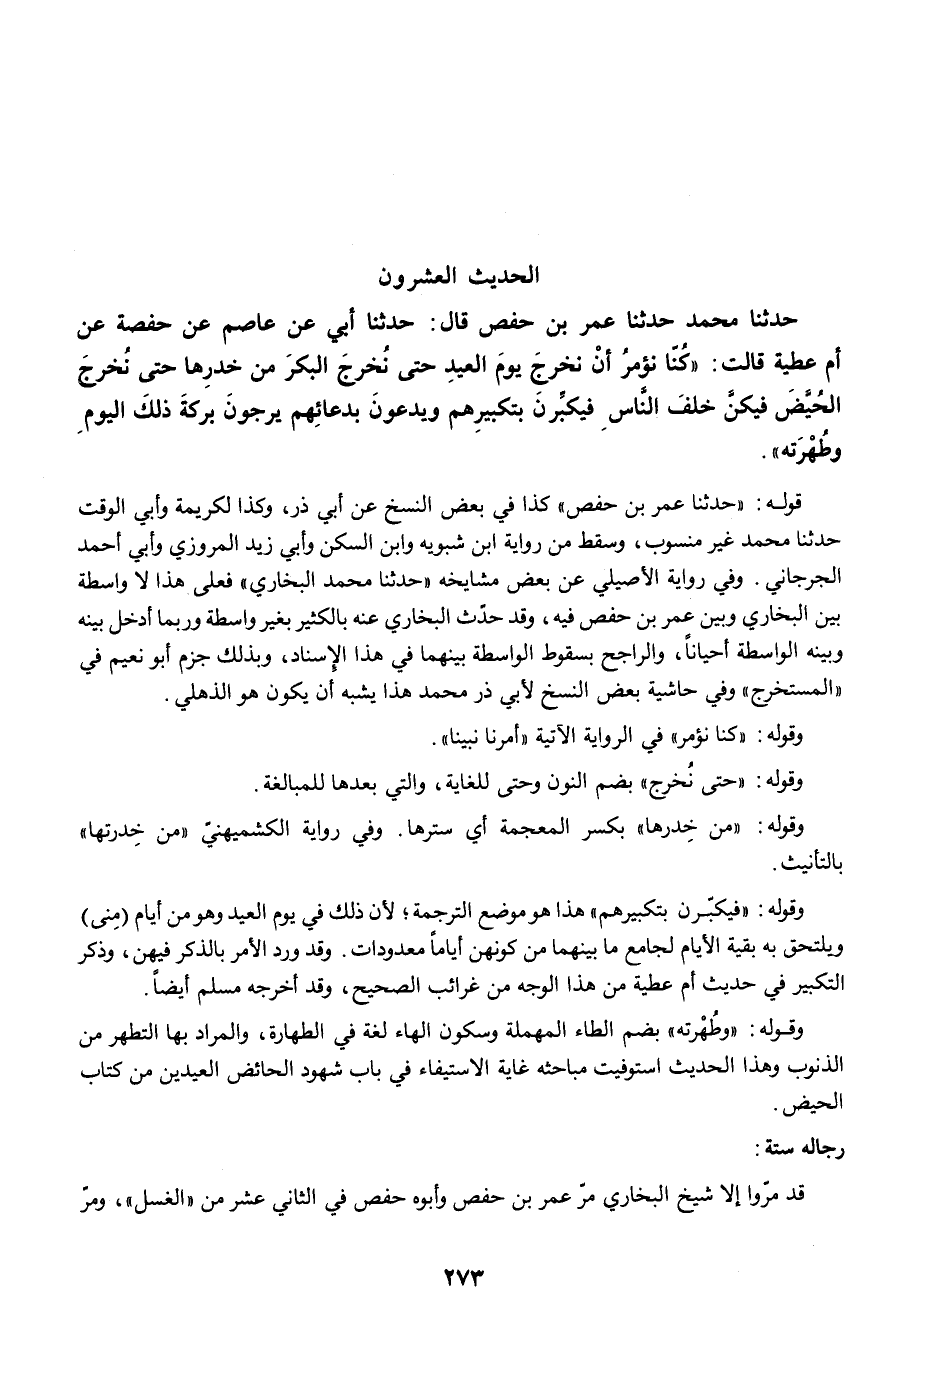 الحديث العشرون
حدثنا محمد حدثنا عمر بن حفص قال: حدثنا أبي عن عاصم عن حفصة عن
أم عطية قالت: «كُنّا نؤمرُ أنْ نخرجَ يومَ العيدِ حتى نُخرجَ البكرَ من خدرِها حتى نُخرجَ
الحُيَّضَ فيكنَّ خلفَ النَّاسِ فيكبِّرنَ بتكبيرِهم ويدعونَ بدعائِهم يرجونَ بركةَ ذلكَ اليومِ
وطُهْرَته».
قوله: «حدثنا عمر بن حفص» كذا في بعض النسخ عن أبي ذر، وكذا لكريمة وأبي الوقت
حدثنا محمد غير منسوب، وسقط من رواية ابن شبويه وابن السكن وأبي زيد المروزي وأبي أحمد
الجرجاني. وفي رواية الأصيلي عن بعض مشايخه «حدثنا محمد البخاري» فعلى هذا لا واسطة
بين البخاري وبين عمر بن حفص فيه، وقد حدّث البخاري عنه بالكثير بغير واسطة وربما أدخل بينه
وبينه الواسطة أحياناً، والراجح سقوط الواسطة بينهما في هذا الإسناد، وبذلك جزم أبو نعيم في
«المستخرج» وفي حاشية بعض النسخ لأبي ذر محمد هذا يشبه أن يكون هو الذهلي.
وقوله: «كنا نؤمر» في الرواية الآتية «أمرنا نبينا».
وقوله: «حتى نُخرج» بضم النون وحتى للغاية، والتي بعدها للمبالغة.
وقوله: «من خِدرها» بكسر المعجمة أي سترها. وفي رواية الكشميهنيّ «من خِدرتها»
بالتأنيث.
وقوله: «فيكبّرن بتكبيرهم» هذا هو موضع الترجمة؛ لأن ذلك في يوم العيد وهو من أيام (مِنى)
ويلتحق به بقية الأيام لجامع ما بينهما من كونهن أياماً معدودات. وقد ورد الأمر بالذكر فيهن، وذكر
التكبير في حديث أم عطية من هذا الوجه من غرائب الصحيح، وقد أخرجه مسلم أيضاً.
وقوله: «وطُهْرته» بضم الطاء المهملة وسكون الهاء لغة في الطهارة، والمراد بها التطهر من
الذنوب وهذا الحديث استوفيت مباحثه غاية الاستيفاء في باب شهود الحائض العيدين من كتاب
الحيض.
رجاله ستة:
قد مرّوا إلا شيخ البخاري مرّ عمر بن حفص وأبوه حفص في الثاني عشر من «الغسل»، ومرّ
٢٧٣